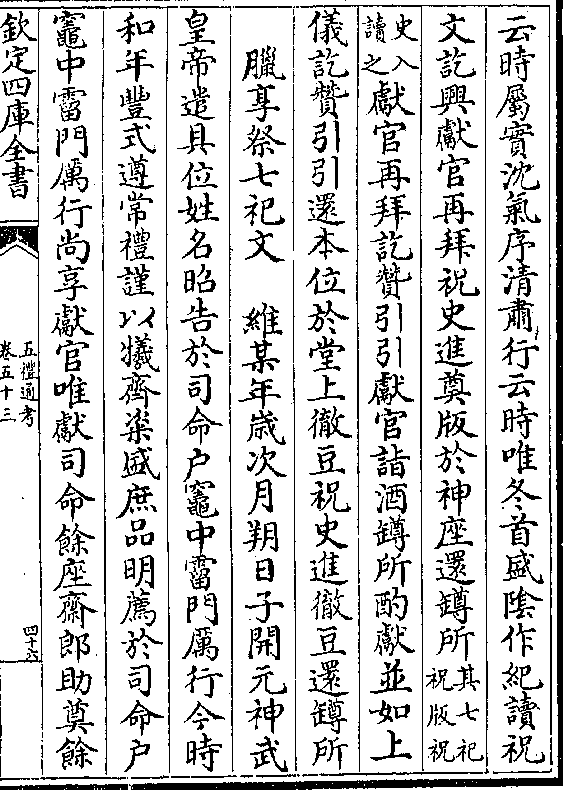 云時屬實沈氣序清肅行云時唯冬首盛陰作紀讀祝
文訖興獻官再拜祝史進奠版於神座還罇所其七祀
祝版祝
史入
讀之獻官再拜訖贊引引獻官詣酒罇所酌獻並如上
儀訖贊引引還本位於堂上徹豆祝史進徹豆還罇所
臘享祭七祀文　維某年歲次月朔日子開元神武
皇帝遣具位姓名昭告於司命户竈中霤門厲行今時
和年豐式遵常禮謹以犧齊粢盛庶品明薦於司命户
竈中霤門厲行尚享獻官唯獻司命餘座齋郎助奠餘
欽定四庫全書
五禮通考
卷五十三
四十六